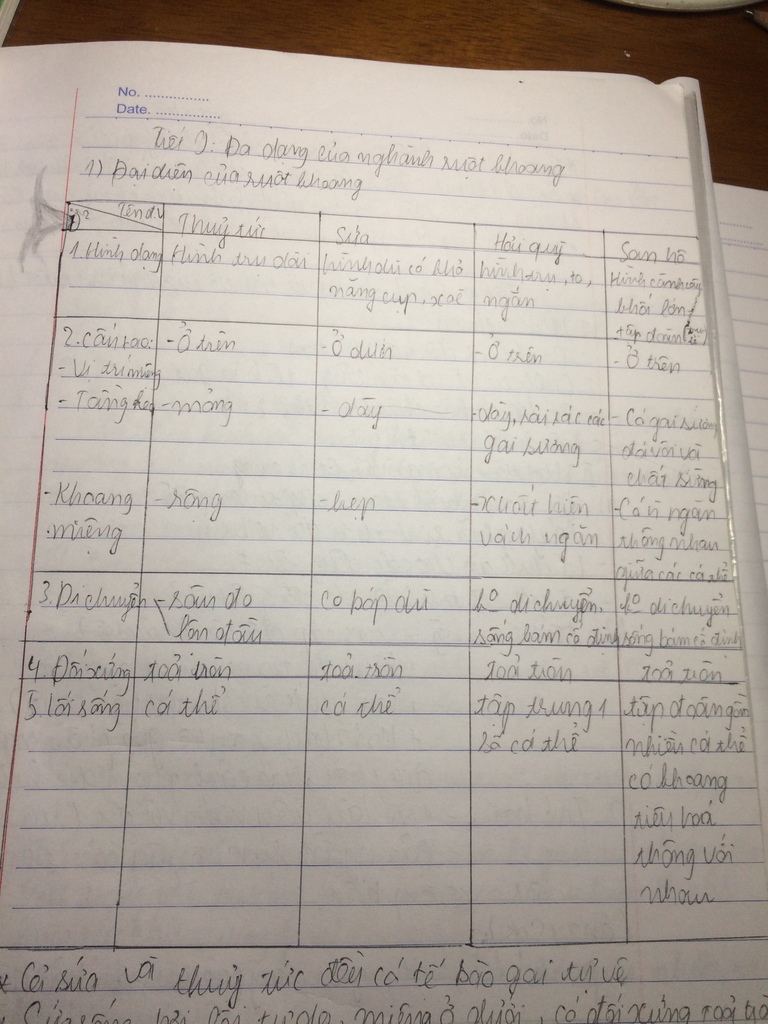 No. ...............
Date. ................
Tiết 9: Đa dạng của nghành ruột khoang
1) Đại diện của ruột khoang
Tên đ.v
Thuỷ tức
Sứa
Hải quỳ
San hô
1. Hình dạng
Hình trụ dài
hình dù có khả
năng cụp, xoè
hình trụ, to,
ngắn
Hình cành cây
khối lớn
tập đoàn
2. Cấu tạo:
- Vị trí miệng
- Ở trên
- Ở dưới
- Ở trên
- Ở trên
- Tầng keo
- mỏng
- dày
- dày, rải rác các
gai xương
- Có gai xương
đá vôi và
chất sừng
- Khoang
miệng
- rộng
- hẹp
- xuất hiện
vách ngăn
- Có n ngăn
thông nhau
giữa các cá thể
3. Di chuyển
- sâu đo
lộn đầu
co bóp dù
ko di chuyển,
sống bám cố định
ko di chuyển
sống bám cố định
4. Đối xứng
toả tròn
toả tròn
toả tròn
toả tròn
5. lối sống
cá thể
cá thể
tập trung 1
số cá thể
tập đoàn gồm
nhiều cá thể
có khoang
tiêu hoá
thông với
nhau
* Cả sứa và thuỷ tức đều có tế bào gai tự vệ
miệng ở dưới, có đối xứng toả trò